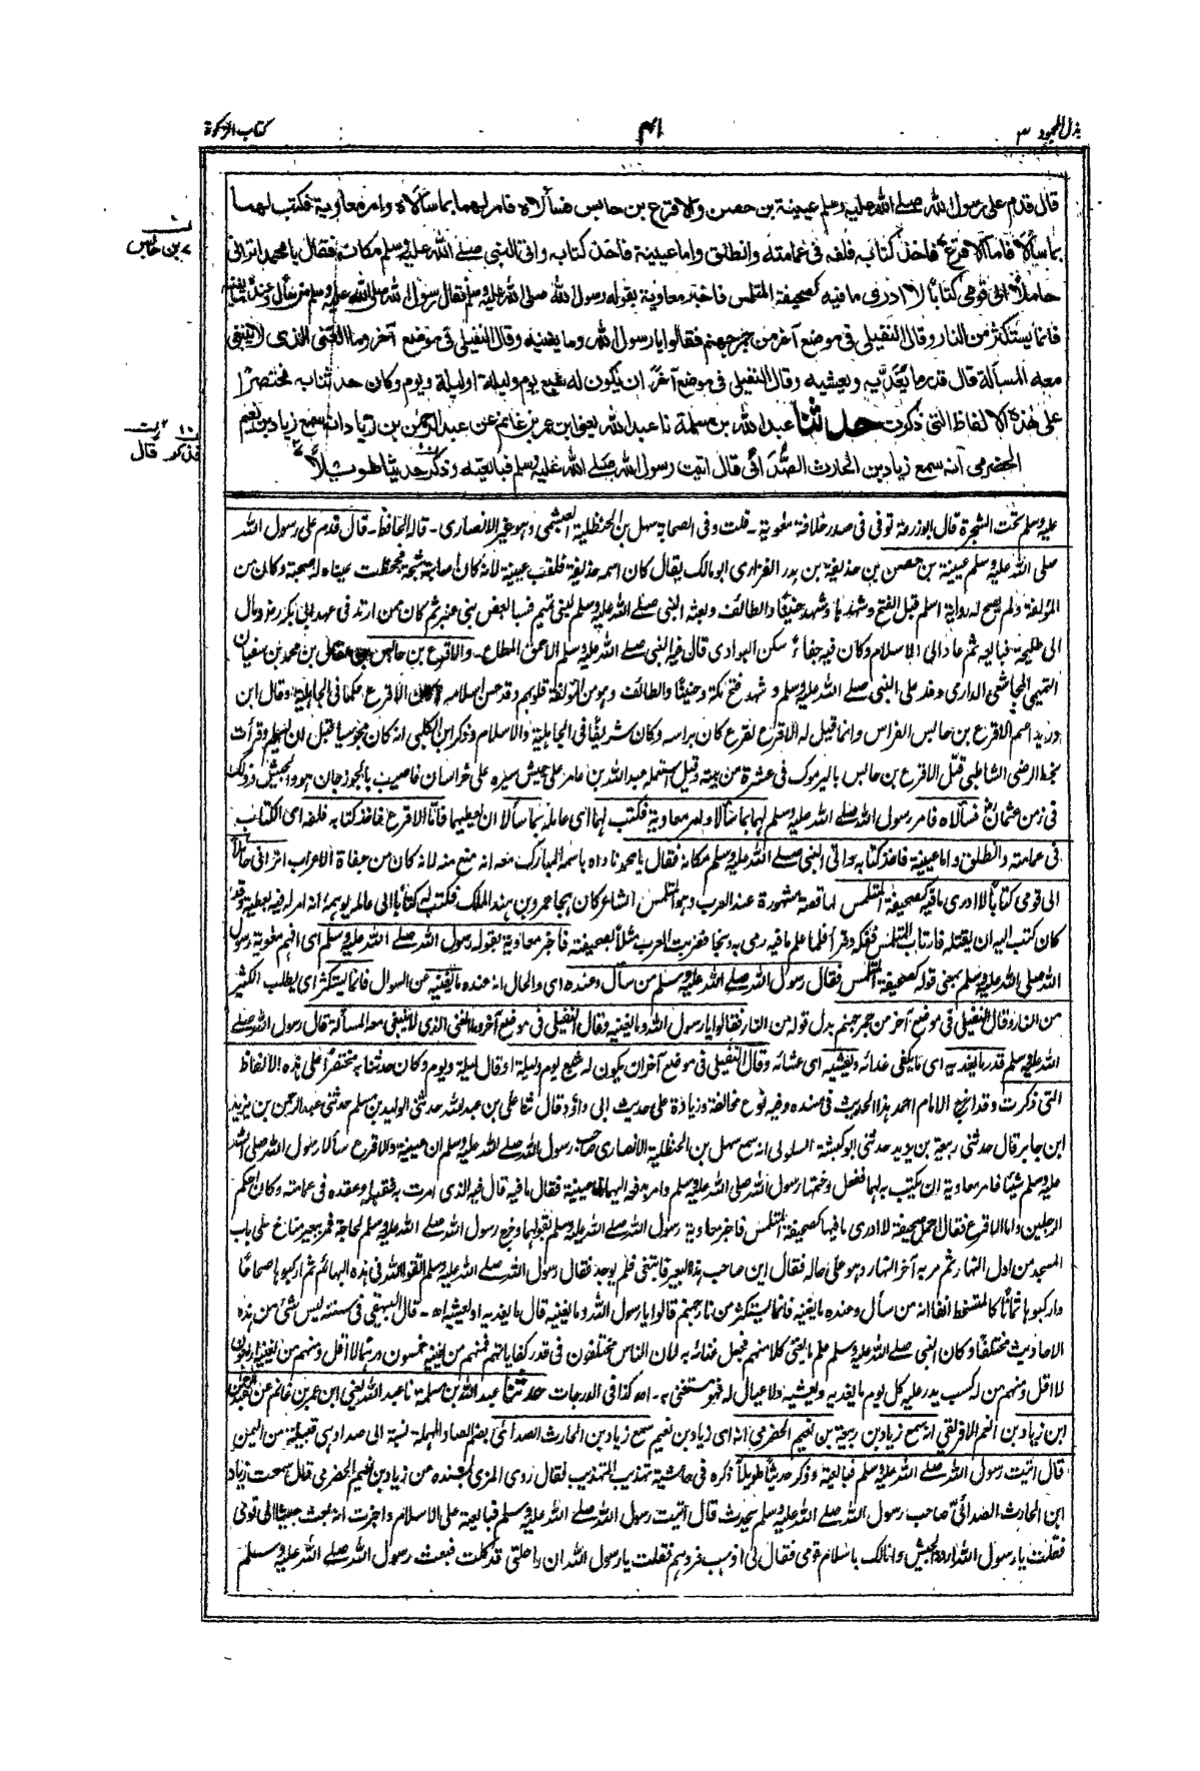 بذل المجهود ٣
٤١
كتاب الزكوة
قال قدم على رسول الله صلے الله عليه وسلم عيينة بن حصن والاقرع بن حابس فسألاه فامر لهما بما سألاه وامر معاوية فكتب لهما
بما سألا فاما الاقرع فاخذ كتابه فلفه فى عمامته وانطلق واما عيينة فاخذ كتابه واتى النبى صلے الله عليه وسلم مكانه فقال يا محمد اترانى
حاملا الى قومى كتابًا لا ادرى ما فيه كصحيفة المتلمس فاخبر معاوية بقوله رسول الله صلى الله عليه وسلم فقال رسول الله صلى الله عليه وسلم من سأل وعنده ما يغنيه
فانما يستكثر من النار وقال النفيلى فى موضع آخر من جمر جهنم فقالوا يا رسول الله وما يغنيه وقال النفيلى فى موضع آخر وما الغنى الذى لا ينبغى
معه المسألة قال قدر ما يُغَدِّيه ويعشيه وقال النفيلى فى موضع آخر ان يكون له شبع يوم وليلة او ليلة ويوم وكان حدثنا به مختصرًا
على هذه الالفاظ التى ذكرت حدثنا عبد الله بن مسلمة نا عبد الله يعنى ابن عمر بن غانم عن عبد الرحمن بن زياد انه سمع زياد بن نعيم
الحضرمى انه سمع زياد بن الحارث الصُّدَائى قال اتيت رسول الله صلے الله عليه وسلم فبايعته وذكر حديثا طويلاً
عليه وسلم تحت الشجرة قال ابو زرعة توفى فى صدر خلافة معوية ـ قلت وفى الصحابة سهل بن الحنظلية العبشمى وهو غير الانصارى ـ قاله الحافظ ـ قال قدم على رسول الله
صلى الله عليه وسلم عيينة بن حصن بن حذيفة بن بدر الفزارى ابو مالك يقال كان اسمه حذيفة فلقب عيينة لانه كان اصابته شجة فجحظت عيناه له صحبة وكان من
المؤلفة ولم يصح له رواية اسلم قبل الفتح وشهدها وشهد حنينًا والطائف وبعثه النبى صلے الله عليه وسلم لبنى تميم فسبا بعض بنى عنبر ثم كان من ارتد فى عهد ابى بكر ومال
الى طليحة فبايعه ثم عاد الى الاسلام وكان فيه جفاء سكن البوادى قال فيه النبى صلے الله عليه وسلم الاحمق المطاع ـ والاقرع بن حابس بن عقال بن محمد بن سفيان
التميمى المجاشعى الدارمى وفد على النبى صلے الله عليه وسلم وشهد فتح مكة وحنينًا والطائف وهو من المؤلفة قلوبهم وقد حسن اسلامه الاقرع حكما فى الجاهلية وقال ابن
دريد اسم الاقرع بن حابس الفراس وانما قيل له الاقرع لقرع كان براسه وكان شريفًا فى الجاهلية والاسلام وذكر ابن الكلبى انه كان مجوسيا قبل ان يسلم وقرأت
بخط الرضى الشاطبى قتل الاقرع بن حابس باليرموك فى عشرة من بنيه وقيل استعمله عبد الله بن عامر على جيش سيره على خراسان فاصيب بالجوزجان هو والجيش وذلك
فى زمن عثمان فسألاه فامر رسول الله صلے الله عليه وسلم لهما بما سألا وامر معاوية فكتب لهما اى عامله بما سألا ان يعطيهما فاما الاقرع فاخذ كتابه فلفه اى الكتاب
فى عمامته وانطلق واما عيينة فاخذ كتابه واتى النبى صلے الله عليه وسلم مكانه فقال يا محمد ناداه باسمه المبارك معه انه منع منه لانه كان من جفاة الاعراب اترانى حاملا
الى قومى كتابًا لا ادرى ما فيه كصحيفة المتلمس لها قصة مشهورة عند العرب وهو المتلمس الشاعر كان هجا عمرو بن هند الملك فكتب له كتابًا الى عامله يوهمه انه امر له فيه بعطية وقد
كان كتب اليه ان يقتله فارتاب المتلمس ففكه وقرأ فلما علم ما فيه رمى به ونجا فضربت العرب مثلاً بصحيفته فاخبر معاوية بقوله رسول الله صلے الله عليه وسلم اى افهم معوية رسول
الله صلى الله عليه وسلم بمعنى قوله كصحيفة المتلمس فقال رسول الله صلے الله عليه وسلم من سأل وعنده اى والحال انه عنده ما يغنيه عن السوال فانما يستكثر اى يطلب الكثير
من النار وقال النفيلى فى موضع آخر من جمر جهنم بدل قوله من النار فقالوا يا رسول الله وما يغنيه وقال النفيلى فى موضع آخر وما الغنى الذى لا ينبغى معه المسألة قال رسول الله صلے
الله عليه وسلم قدر ما يغديه اى ما يكفى غدائه ويعشيه اى عشائه وقال النفيلى فى موضع آخر ان يكون له شبع يوم وليلة او قال ليلة ويوم وكان حدثنا به مختصرًا على هذه الالفاظ
التى ذكرت وقد اخرج الامام احمد هذا الحديث فى مسنده وفيه نوع مخالفة وزيادة على حديث ابى داؤد قال ثنا على بن عبد الله حدثنى الوليد بن مسلم حدثنى عبد الرحمن بن يزيد
ابن جابر قال حدثنى ربيعة بن يزيد حدثنى ابو كبشة السلولى انه سمع سهل بن الحنظلية الانصارى صاحب رسول الله صلے الله عليه وسلم ان عيينة والاقرع سألا رسول الله صلى الله
عليه وسلم شيئا فامر معاوية ان يكتب به لهما ففعل وختمها رسول الله صلى الله عليه وسلم وامر بدفعه اليهما فاما عيينة فقال ما فيه قال فيه الذى امرت به فقبله وعقده فى عمامته وكان احكم
الرجلين واما الاقرع فقال احمل صحيفة لا ادرى ما فيها كصحيفة المتلمس فاخبر معاوية رسول الله صلے الله عليه وسلم بقولهما وخرج رسول الله صلے الله عليه وسلم لحاجة فمر ببعير مناخ على باب
المسجد من اول النهار ثم مر به آخر النهار وهو على حاله فقال اين صاحب هذا البعير فابتغى فلم يوجد فقال رسول الله صلے الله عليه وسلم اتقوا الله فى هذه البهائم ثم اركبوها صحاحًا
واركبوها سمانًا كالمتسخط انفا انه من سأل وعنده ما يغنيه فانما يستكثر من نار جهنم قالوا يا رسول الله وما يغنيه قال ما يغديه او يعشيه اه ـ قال البيهقى فى سننه ليس شئ من هذه
الاحاديث مختلفًا وكان النبى صلے الله عليه وسلم علم ما يغنى كلا منهم فجعل غنائه به لان الناس مختلفون فى قدر كفاياتهم فمنهم من يغنيه خمسون درهمًا لا اقل ومنهم من يغنيه اربعون
لا اقل ومنهم من له كسب يدر عليه كل يوم ما يغديه ويعشيه ولا عيال له فهو مستغنى به ـ اه كذا فى الدرجات حدثنا عبد الله بن مسلمة نا عبد الله يعنى ابن عمر بن غانم عن عبد الرحمن
ابن زياد بن انعم الافريقى انه سمع زياد بن ربيعة بن نعيم الحضرمى انه اى زياد بن نعيم سمع زياد بن الحارث الصدائى بضم الصاد المهملة نسبة الى صداء وهى قبيلة من اليمن
قال اتيت رسول الله صلے الله عليه وسلم فبايعته وذكر حديثًا طويلاً ذكره فى حاشية تهذيب التهذيب فقال روى المزى بسنده عن زياد بن نعيم الحضرمى قال سمعت زياد
ابن الحارث الصدائى صاحب رسول الله صلے الله عليه وسلم يحدث قال اتيت رسول الله صلے الله عليه وسلم فبايعته على الاسلام واخبرت انه بعث جيشا الى قومى
فقلت يا رسول الله اردد الجيش وانا لك باسلام قومى فقال لى اذهب فردهم فقلت يا رسول الله ان راحلتى قد كلت فبعث رسول الله صلے الله عليه وسلم